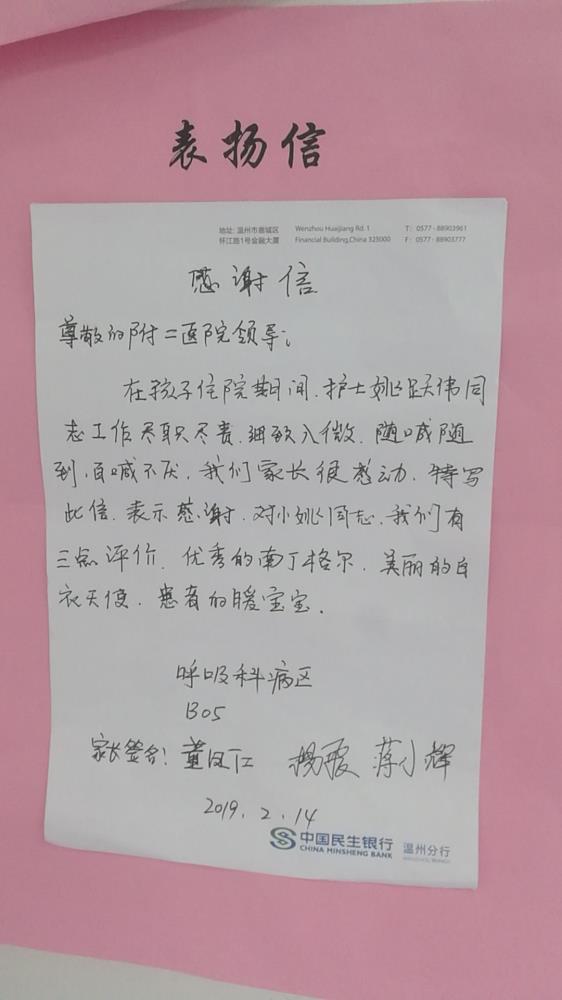 表扬信
地址: 温州市鹿城区 Wenzhou Huaijiang Rd. 1 T: 0577 - 88903961
怀江路1号金融大厦 Financial Building,China 325000 F: 0577 - 88903777
感谢信
尊敬的附二医院领导:
在孩子住院期间,护士姚跃伟同
志工作尽职尽责.细致入微.随喊随
到,百喊不厌,我们家长很感动.特写
此信.表示感谢.对小姚同志.我们有
三点评价.优秀的南丁格尔.美丽的白
衣天使.患者的暖宝宝.
呼吸科病区
B05
家长签名: 董 仁 杨霞 蒋小辉
2019.2.14
中国民生银行 温州分行
CHINA MINSHENG BANK